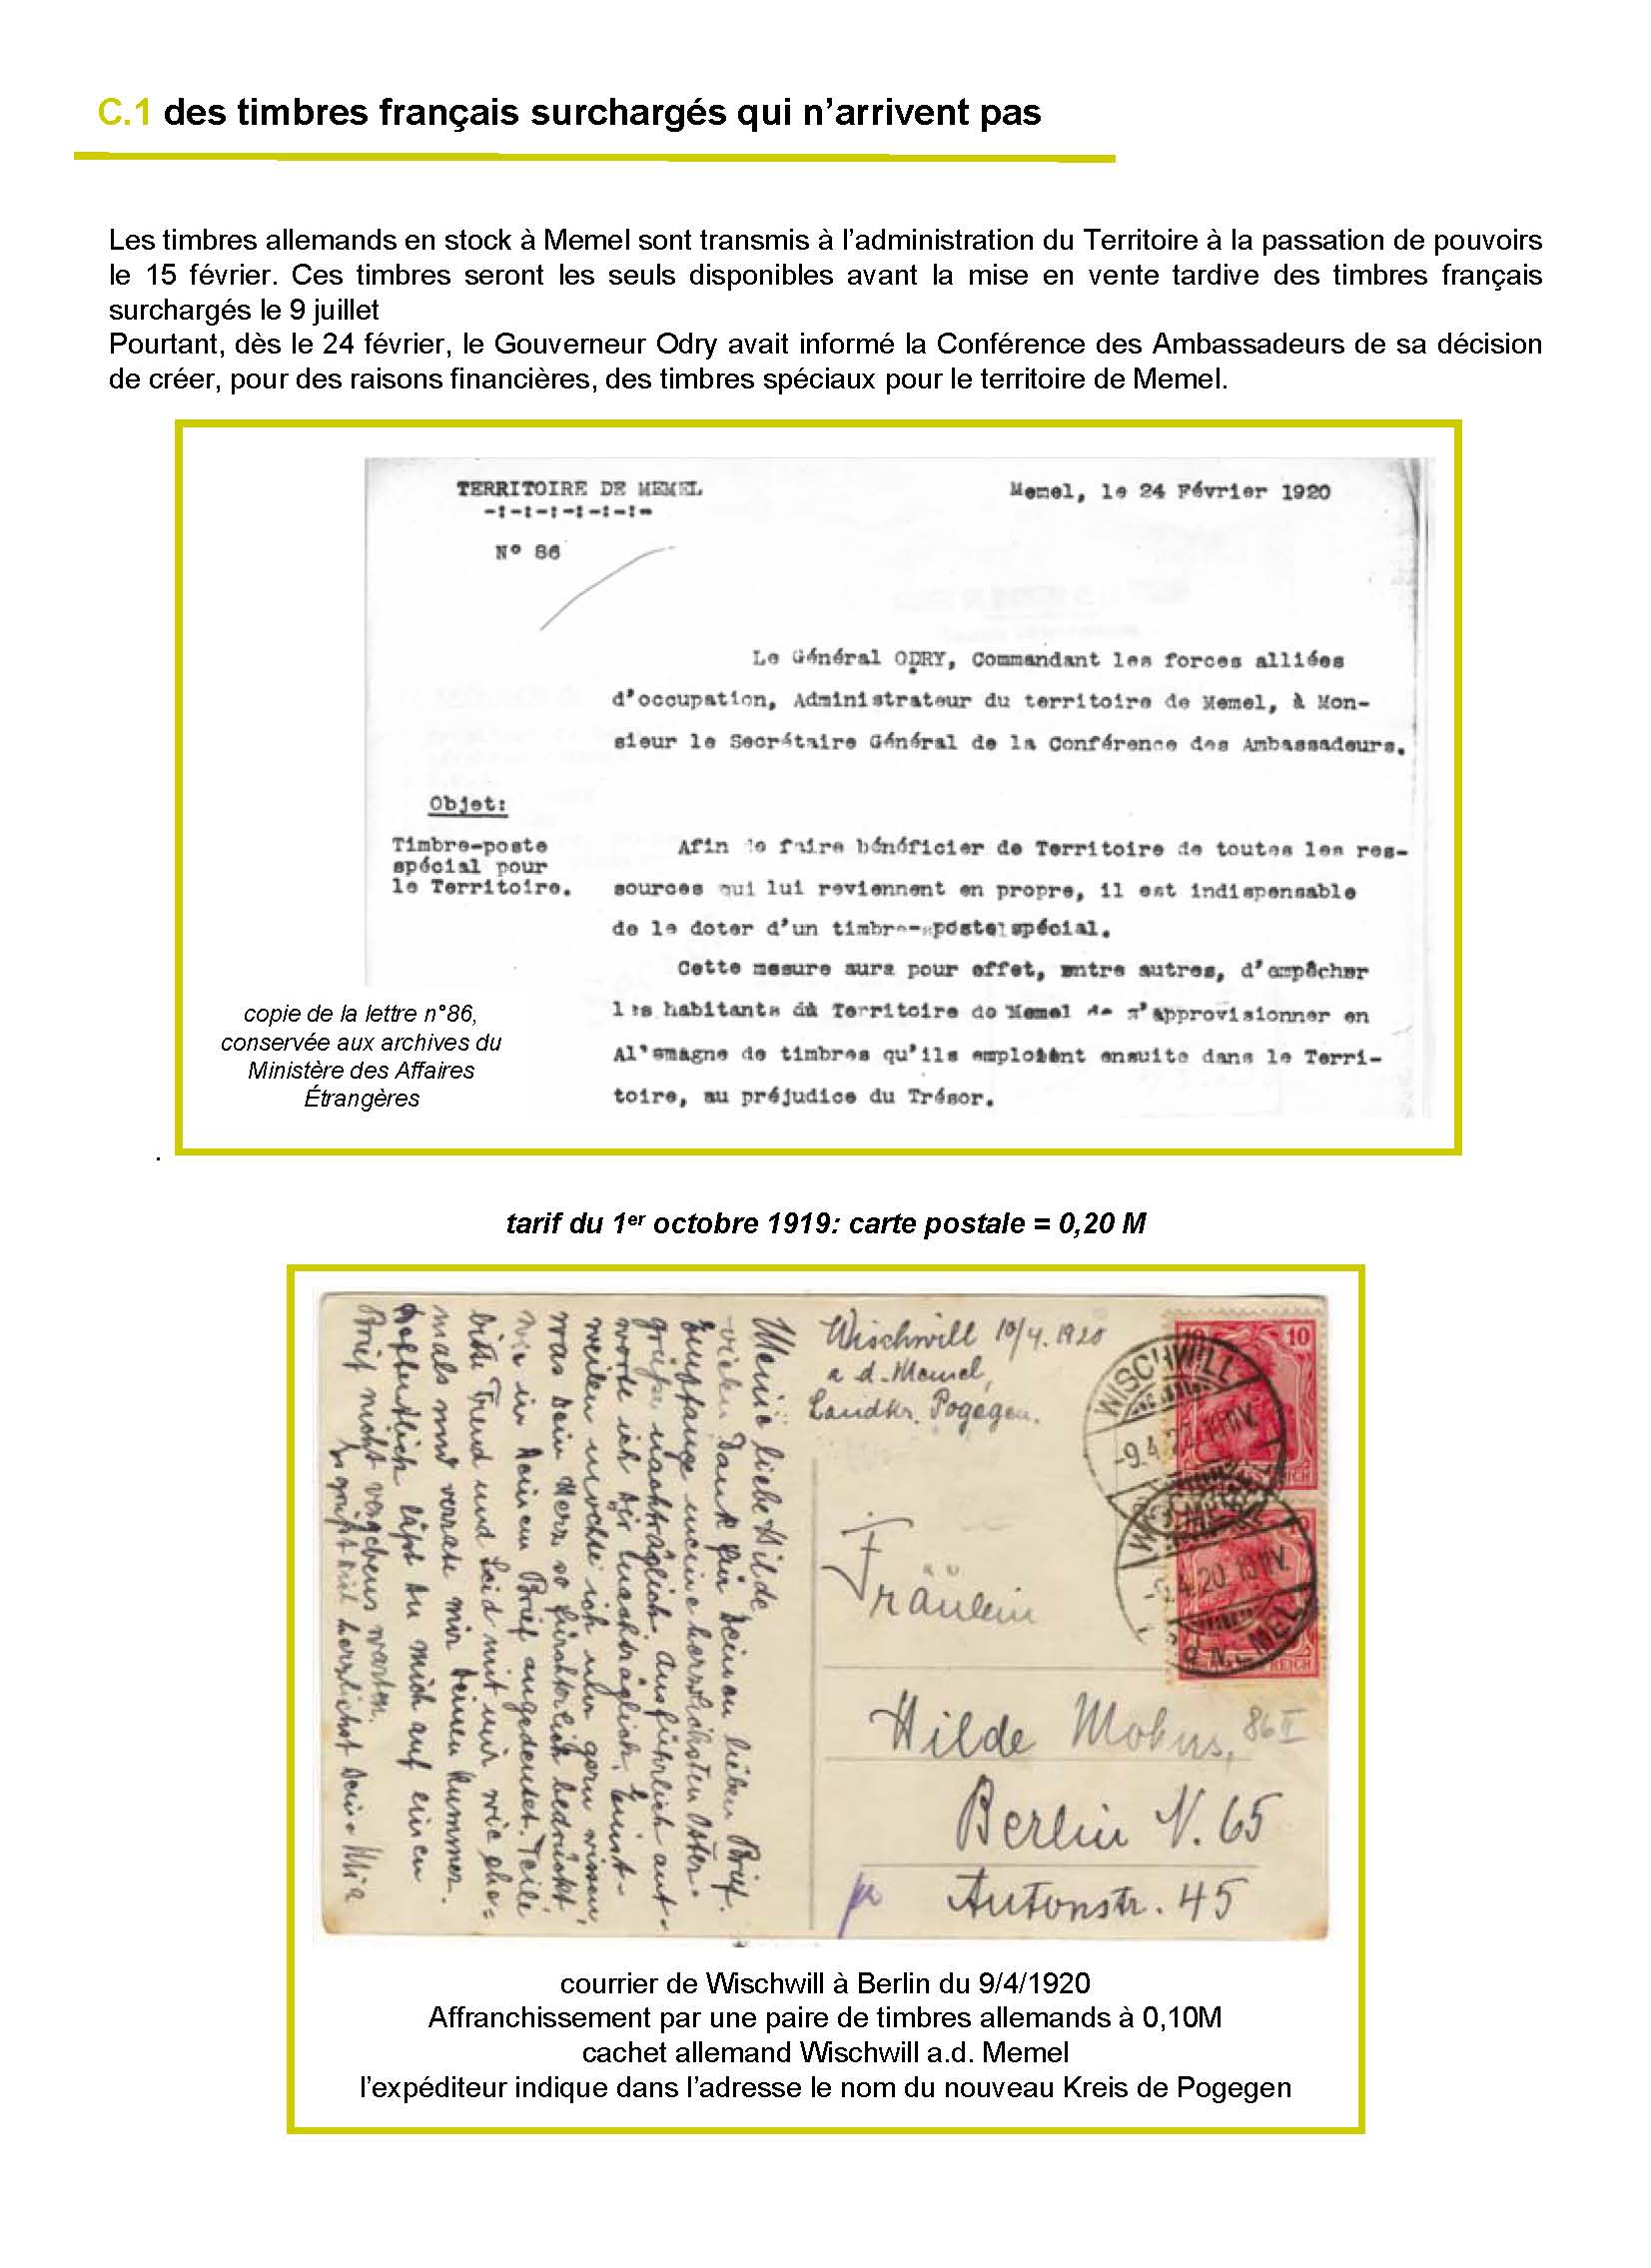 C.1 des timbres français surchargés qui n'arrivent pas
Les timbres allemands en stock à Memel sont transmis à l'administration du Territoire à la passation de pouvoirs
le 15 février. Ces timbres seront les seuls disponibles avant la mise en vente tardive des timbres français
surchargés le 9 juillet
Pourtant, dès le 24 février, le Gouverneur Odry avait informé la Conférence des Ambassadeurs de sa décision
de créer, pour des raisons financières, des timbres spéciaux pour le territoire de Memel.
TERRITOIRE DE MEMEL
-:-:-:-:-:-:-
N° 86
Memel, le 24 Février 1920
Le Général ODRY, Commandant les forces alliées
d'occupation, Administrateur du territoire de Memel, à Mon-
sieur le Secrétaire Général de la Conférence des Ambassadeurs.
Objet:
Timbre-poste
spécial pour
le Territoire.
Afin de faire bénéficier de Territoire de toutes les res-
sources qui lui reviennent en propre, il est indispensable
de le doter d'un timbre-poste spécial.
Cette mesure aura pour effet, entre autres, d'empêcher
les habitants du Territoire de Memel de s'approvisionner en
Al'emagne de timbres qu'ils emploient ensuite dans le Terri-
toire, au préjudice du Trésor.
copie de la lettre n°86,
conservée aux archives du
Ministère des Affaires
Étrangères
.
tarif du 1er octobre 1919: carte postale = 0,20 M
Meine liebe Hilde,
vielen Dank für Deinen lieben Brief.
Empfange meine herzlichsten Oster-
grüße nachträglich. Ausführlich ant-
worte ich Dir nachträglich. Einst-
weilen möchte ich nur gern wissen,
was Dein Herz so fürchterlich bedrückt
wie in Deinem Brief angedeutet. Teile
bitte Freud und Leid mit mir wie ehe-
mals und verrate mir Deinen Kummer.
Hoffentlich läßt Du mich auf einen
Brief nicht vergebens warten.
Es grüßt Dich herzlichst Deine Mia
Wischwill 10/4.1920
a d. Memel,
Landkr. Pogegen.
10 10
WISCHWILL
-9.4.20. 10-11V.
REICH
10
WISCHWILL
9.4.20. 10-11V.
MEMEL
REICH
Fräulein
Hilde Mobus, 86 II
Berlin N. 65
Antonstr. 45
courrier de Wischwill à Berlin du 9/4/1920
Affranchissement par une paire de timbres allemands à 0,10M
cachet allemand Wischwill a.d. Memel
l'expéditeur indique dans l'adresse le nom du nouveau Kreis de Pogegen